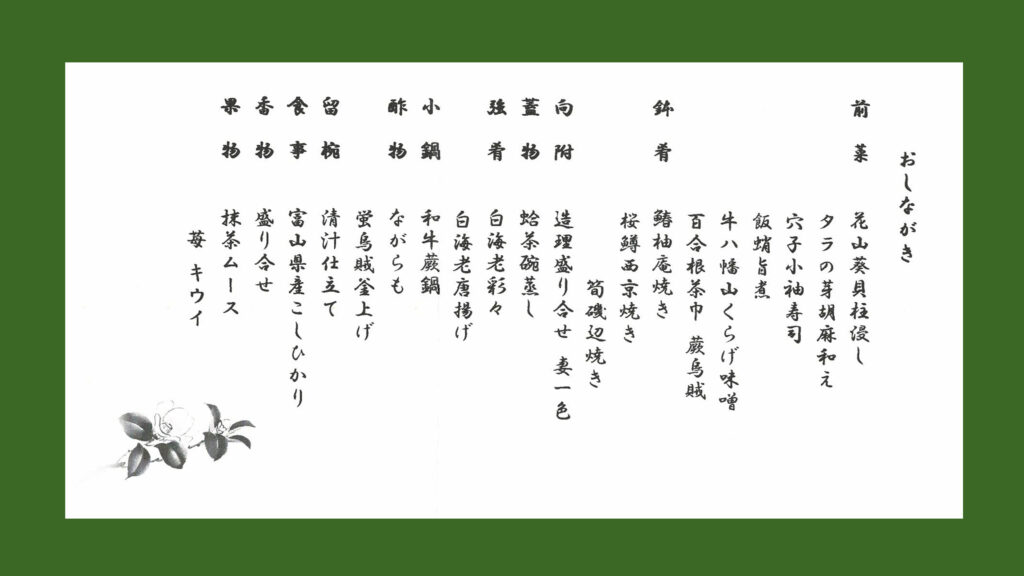 おしながき
前菜 花山葵貝柱浸し
タラの芽胡麻和え
穴子小袖寿司
飯蛸旨煮
牛八幡山くらげ味噌
百合根茶巾 蕨烏賊
鉢肴 鰆柚庵焼き
桜鱒西京焼き
筍磯辺焼き
向附 造理盛り合せ 妻一色
蓋物 蛤茶碗蒸し
強肴 白海老彩々
白海老唐揚げ
小鍋 和牛蕨鍋
酢物 ながらも
蛍烏賊釜上げ
留椀 清汁仕立て
食事 富山県産こしひかり
香物 盛り合せ
果物 抹茶ムース
苺 キウイ